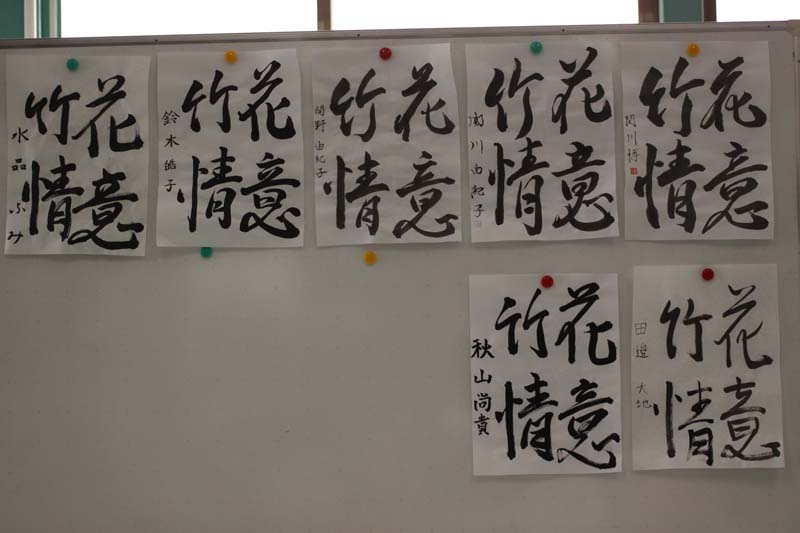 花意
竹情
水品ふみ
花意
竹情
鈴木皓子
花意
竹情
間野由紀子
花意
竹情
川由紀子
花意
竹情
関川博
花意
竹情
秋山尚貴
花意
竹情
田邉大地